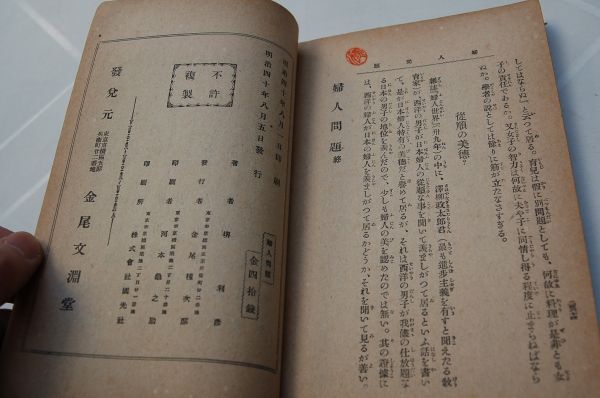 婦人問題
してはならぬ」と云つて居る。育兒は暫に別問題としても、何故に料理が是非とも女
子の責任であるか。又女子の智力は何故に夫や子に同情し得る程度に止まらねばなら
ぬか。學者の説としては餘りに筋が立たなさすぎる。
從順の美德?
雜誌『婦人世界』の中に、澤柳政太郎君(最も進步主義を有すと聞えたる敎
育家)が、西洋の男子が日本婦人の從順な事を聞いて羨ましがつて居るといふ話を書い
て、是が日本婦人特有の美德だと譽めて居るが、それは西洋の男子が我儘の仕放題な
る日本の男子の地位を羨んだので、少しも婦人の美を認めたのでは無い。其の證據に
は、西洋の婦人が日本の婦人を羨ましがつて居るかどうか、それを聞いて見るが善い。
婦人問題 終
明治四十年八月 日印刷
明治四十年八月五日發行
不許
複製
婦人問題
金四拾錢
著者 堺利彦
發行者 金尾種次郎
印刷者 河本龜之助
印刷所 株式會社國光社
發兌元
金尾文淵堂